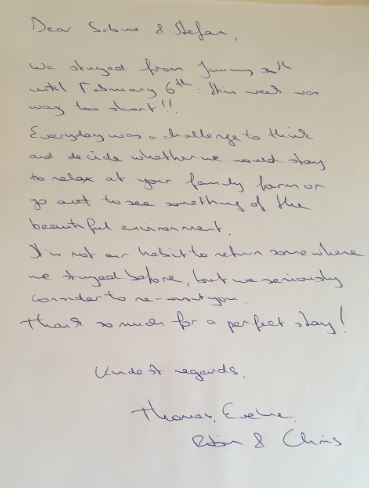 Dear Sabine & Stefan,
We stayed from January 30th
until February 6th: this week was
way too short!!
Everyday was a challenge to think
and decide whether we would stay
to relax at your family farm or
go out to see something of the
beautiful environment.
It is not our habit to return somewhere
we stayed before, but we seriously
consider to re-visit you.
Thank so much for a perfect stay!
Kindest regards,
Thomas, Eveline,
Robin & Chris